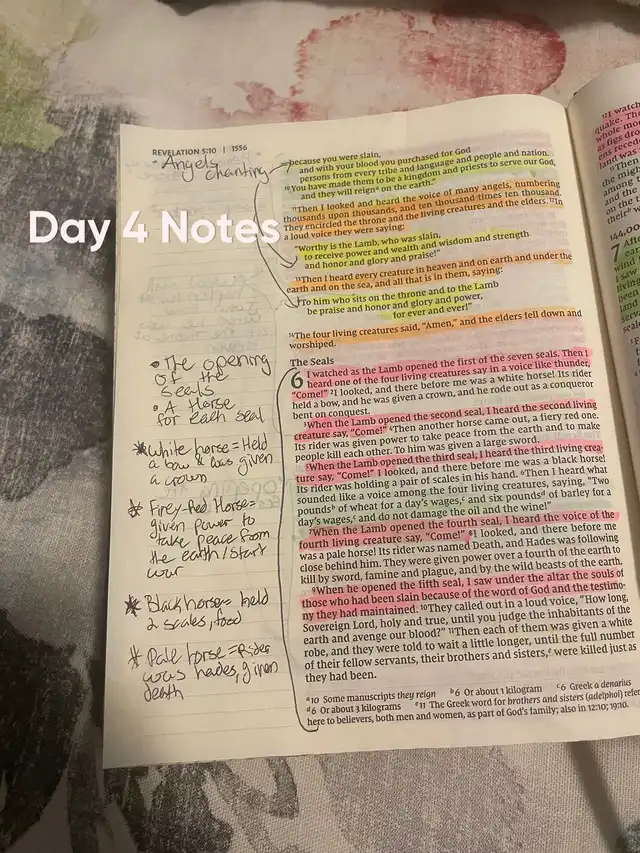 REVELATION 5:10 | 1556
• Angels
chanting
Day 4 Notes
because you were slain,
and with your blood you purchased for God
persons from every tribe and language and people and nation.
10 You have made them to be a kingdom and priests to serve our God,
and they will reignᵃ on the earth."
11 Then I looked and heard the voice of many angels, numbering
thousands upon thousands, and ten thousand times ten thousand.
They encircled the throne and the living creatures and the elders. 12 In
a loud voice they were saying:
"Worthy is the Lamb, who was slain,
to receive power and wealth and wisdom and strength
and honor and glory and praise!"
13 Then I heard every creature in heaven and on earth and under the
earth and on the sea, and all that is in them, saying:
"To him who sits on the throne and to the Lamb
be praise and honor and glory and power,
for ever and ever!"
14 The four living creatures said, "Amen," and the elders fell down and
worshiped.
The Seals
6 I watched as the Lamb opened the first of the seven seals. Then I
heard one of the four living creatures say in a voice like thunder,
"Come!" 2 I looked, and there before me was a white horse! Its rider
held a bow, and he was given a crown, and he rode out as a conqueror
bent on conquest.
3 When the Lamb opened the second seal, I heard the second living
creature say, "Come!" 4 Then another horse came out, a fiery red one.
Its rider was given power to take peace from the earth and to make
people kill each other. To him was given a large sword.
5 When the Lamb opened the third seal, I heard the third living crea-
ture say, "Come!" I looked, and there before me was a black horse!
Its rider was holding a pair of scales in his hand. 6 Then I heard what
sounded like a voice among the four living creatures, saying, "Two
poundsᵇ of wheat for a day's wages,ᶜ and six poundsᵈ of barley for a
day's wages,ᶜ and do not damage the oil and the wine!"
7 When the Lamb opened the fourth seal, I heard the voice of the
fourth living creature say, "Come!" 8 I looked, and there before me
was a pale horse! Its rider was named Death, and Hades was following
close behind him. They were given power over a fourth of the earth to
kill by sword, famine and plague, and by the wild beasts of the earth.
9 When he opened the fifth seal, I saw under the altar the souls of
those who had been slain because of the word of God and the testimo-
ny they had maintained. 10 They called out in a loud voice, "How long,
Sovereign Lord, holy and true, until you judge the inhabitants of the
earth and avenge our blood?" 11 Then each of them was given a white
robe, and they were told to wait a little longer, until the full number
of their fellow servants, their brothers and sisters,ᵉ were killed just as
they had been.
ᵃ10 Some manuscripts they reign ᵇ6 Or about 1 kilogram ᶜ6 Greek a denarius
ᵈ6 Or about 3 kilograms ᵉ11 The Greek word for brothers and sisters (adelphoi) refer
here to believers, both men and women, as part of God's family; also in 12:10; 19:10.
• The opening
of the
seals
• A Horse
for each seal
* White horse = Held
a bow & was given
a crown
* Firey-Red Horse =
given power to
take peace from
the earth / start
war
* Black horse = held
2 scales, food
* Pale horse = Rider
was hades, given
death
144,00
7